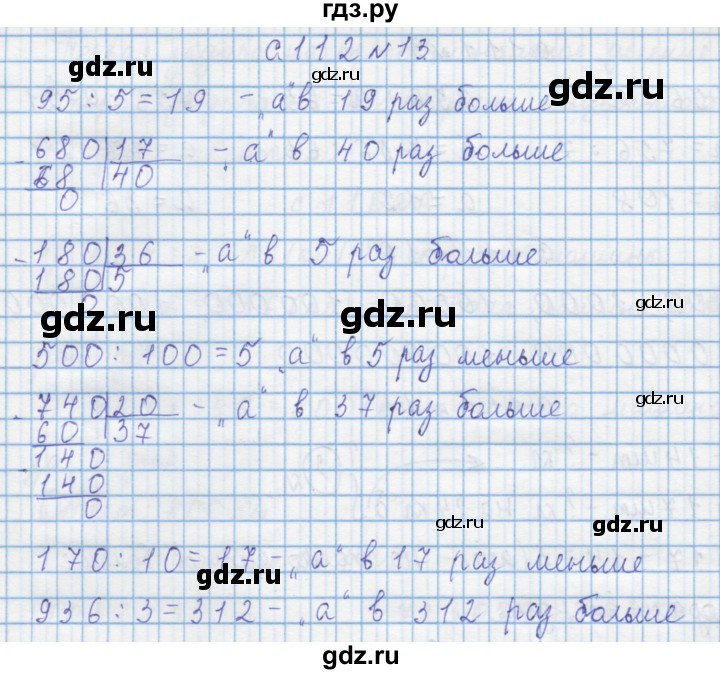 гдз.ру
с 112 №13
gdz.ru
gdz.ru
gdz.ru
95 : 5 = 19 - „а" в 19 раз больше
680 17 - „а" в 40 раз больше
68 40
0
gdz.ru
180 36 - „а" в 5 раз больше
180 5
0
gdz.ru
gdz.ru
gdz.ru
500 : 100 = 5 „а" в 5 раз меньше
740 20 - „а" в 37 раз больше
gdz.ru
60 37
140
140
0
gdz.ru
gdz.ru
170 : 10 = 17 - „а" в 17 раз меньше
gdz.ru
936 : 3 = 312 - „а" в 312 раз больше
gdz.ru